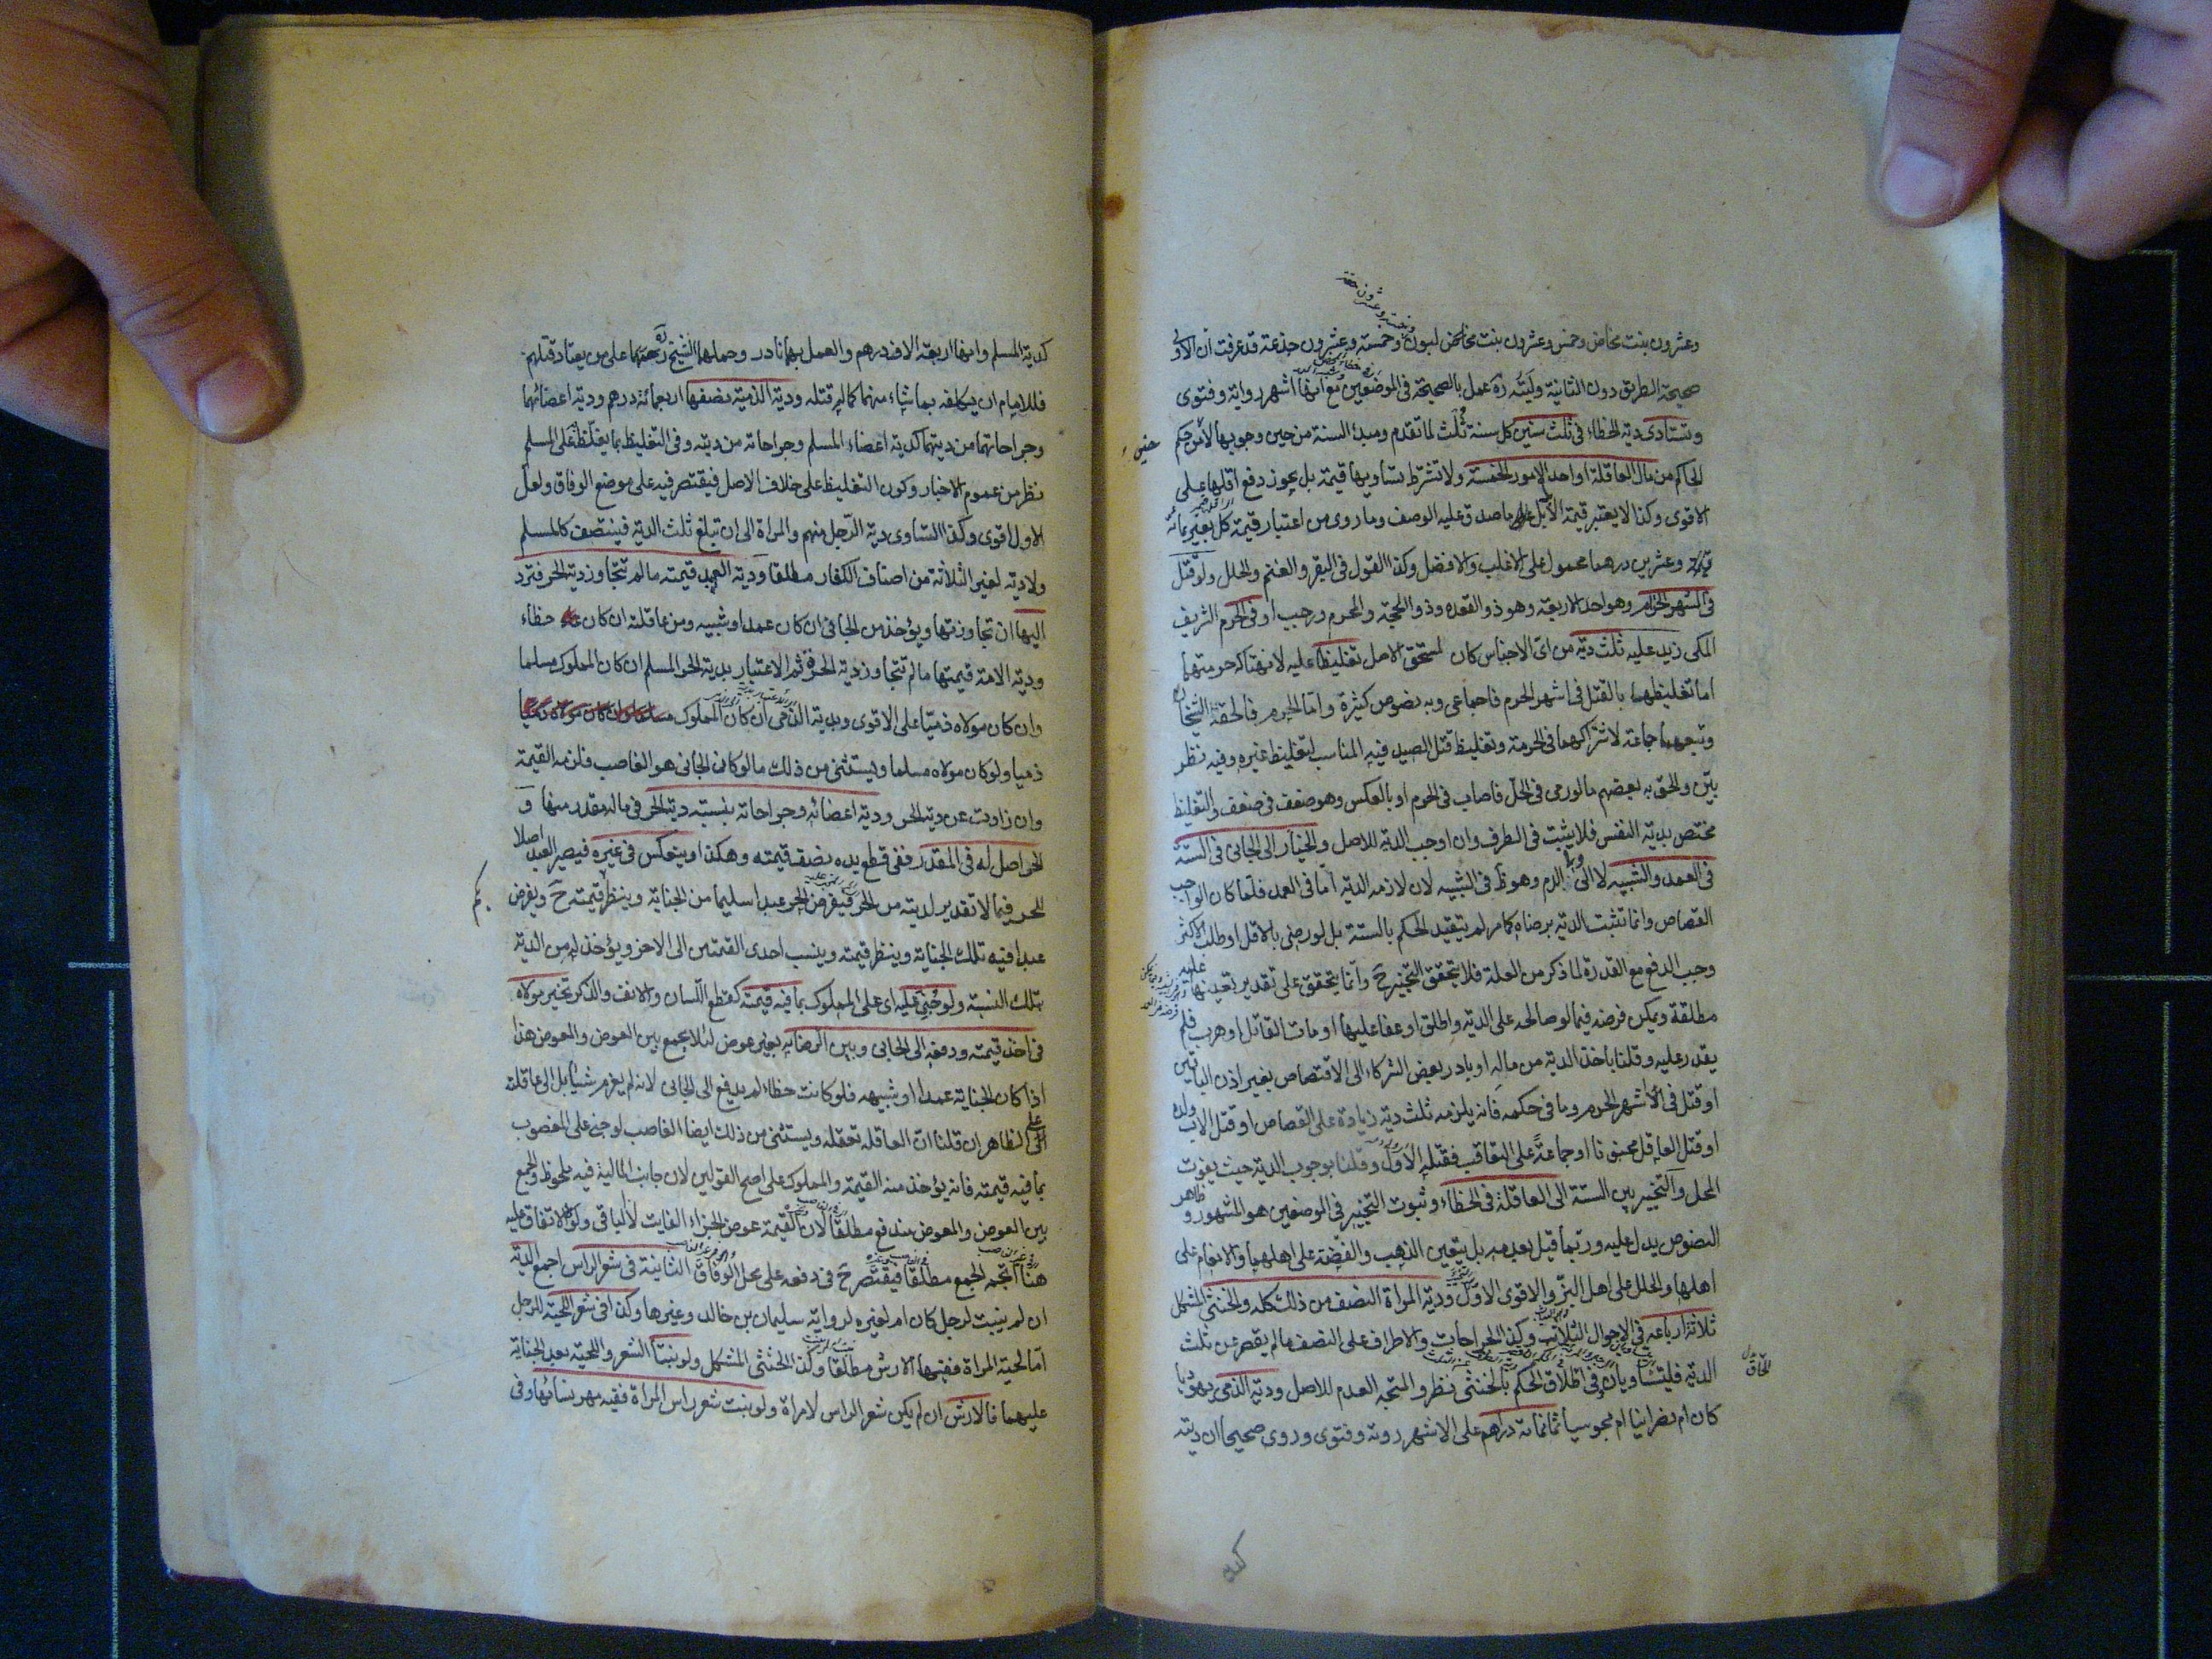 وعشرون بنت مخاض وخمس وعشرون بنت لبون وخمسة وعشرون جذعة قد عرفت ان الاولى
صحيحة الطريق دون الثانية وليته ره عمل بالصحيحة في الموضعين مع انها اشهر رواية وفتوى
وتستادى دية الخطاء في ثلث سنين كل سنة ثلث لما تقدم ومبدا السنة من حين وجوبها لا من حين حكم
الحاكم من مال العاقلة او احد الامور الخمسة ولا تشترط تساويها قيمة بل يجوز دفع اقلها على
الاقوى وكذا لا يعتبر قيمة الابل بل ما صدق عليه الوصف وما روى من اعتبار قيمة كل بعير بمائة
وعشرين درهما محمول على الاغلب والافضل وكذا القول في البقر والغنم والحلل ولو قتل
في الشهر الحرام وهو احد الاربعة وهو ذو القعده وذو الحجة والمحرم ورجب او في الحرم الشريف
المكى زيد عليه ثلث دية من اى الاجناس كان لمستحق الاصل تغليظا عليه لانتهاكه حرمتهما
اما تغليظها بالقتل في اشهر الحرم فاجماعى وبه نصوص كثيرة واما الحرم فالحقه الشيخان
وتبعهما جماعة لاشتراكهما في الحرمة وتغليظ قتل الصيد فيه المناسب لتغليظ غيره وفيه نظر
بين والحق به بعضهم ما لو رمى في الحل فاصاب في الحرم او بالعكس وهو ضعف في ضعف والتغليظ
مختص بدية النفس فلا يثبت في الطرف وان اوجب الدية للاصل والخيار الى الجانى في الستة
في العمد والشبيه لا الى ولى الدم وهو ظ في الشبيه لان لازمه الدية اما في العمد فلما كان الواجب
القصاص وانما تثبت الدية برضاه كما مر لم يتقيد الحكم بالستة بل لو رضى بالاقل او طلب الاكثر
وجب الدفع مع القدرة لما ذكر من العلة فلا يتحقق التخيير ح وانما يتحقق على تقدير تعينها عليه
مطلقة ويمكن فرضه فيما لو صالحه على الدية واطلق او عفا عليها او مات القاتل او هرب فلم
يقدر عليه وقلنا باخذ الدية من ماله او بادر بعض الشركاء الى الاقتصاص بغير اذن الباقين
او قتل في الاشهر الحرم وما في حكمه فانه يلزمه ثلث دية زيادة على القصاص او قتل الاب ولده
او قتل العاقل مجنونا او جماعة على التعاقب فقتله الاول وقلنا بوجوب الدية حيث يفوت
المحل والتخيير بين الستة الى العاقلة في الخطاء وثبوت التخيير في الموضعين هو المشهور وظاهر
النصوص يدل عليه وربما قيل بعدمه بل يتعين الذهب والفضة على اهلهما والانعام على
اهلها والحلل على اهل البز والاقوى الاول ودية المراة النصف من ذلك كله والخنثى المشكل
ثلاثة ارباعه في الاحوال الثلاث وكذا الجراحات والاطراف على النصف ما لم يقصر عن ثلث
الدية فليتساويان وفي الحاق الحكم بالخنثى نظر والمتجه العدم للاصل ودية الذمى يهوديا
كان ام نصرانيا ام مجوسيا ثمانمائة درهم على الاشهر روية وفتوى وروى صحيحا ان ديته
كدية المسلم وانها اربعة الاف درهم والعمل بهما نادر وحملهما الشيخ ره على من يعتاد قتلهم
فللامام ان يكلفه بما شاء منهما كما له قتله ودية الذمية نصفها اربعمائة درهم ودية اعضائهما
وجراحاتهما من ديتهما كدية اعضاء المسلم وجراحاته من ديته وفي التغليظ بما يغلظ على المسلم
نظر من عموم الاخبار وكون التغليظ على خلاف الاصل فيقتصر فيه على موضع الوفاق ولعل
الاول اقوى وكذا التساوى دية الرجل منهم والمراة الى ان تبلغ ثلث الدية فينتصف كالمسلم
ولا دية لغير الثلاثة من اصناف الكفار مطلقا ودية العبد قيمته ما لم تتجاوز دية الحر فترد
اليها ان تجاوزتها ويؤخذ من الجانى ان كان عمدا او شبيه ومن عاقلته ان كان خطاء
ودية الامة قيمتها ما لم تتجاوز دية الحرة ثم الاعتبار بدية الحر المسلم ان كان المملوك مسلما
وان كان مولاه ذميا على الاقوى وبدية الذمى ان كان المملوك
ذميا ولو كان مولاه مسلما ويستثنى من ذلك ما لو كان الجانى هو الغاصب فلزمه القيمة
وان زادت عن دية الحر ودية اعضائه وجراحاته بنسبة دية الحر في ماله مقدر منها و
الحر اصل له في المقدر ففى قطع يده نصف قيمته وهكذا وينعكس في غيره فيصير العبد اصلا
للحر فيما لا تقدير لديته من الحر فيفرض الحر عبدا سليما من الجناية وينظر كم قيمته ح ويفرض
عبدا فيه تلك الجناية وينظر قيمته وينسب احدى القيمتين الى الاخر ويؤخذ له من الدية
بتلك النسبة ولو جنى عليه اى على المملوك بما فيه قيمته كقطع اللسان والانف والذكر تخير مولاه
في اخذ قيمته ودفعه الى الجانى وبين الرضا به بغير عوض لئلا يجمع بين العوض والمعوض هذا
اذا كان الجناية عمدا او شبيهه فلو كانت خطاء لم يدفع الى الجانى لانه لم يغرم شيئا بل الى عاقلته
على الظاهر ان قلنا ان العاقلة تعقله ويستثنى من ذلك ايضا الغاصب لو جنى على المغصوب
بما فيه قيمته فانه يؤخذ منه القيمة والمملوك على اصح القولين لان جانب المالية فيه ملحوظ والجمع
بين العوض والمعوض مندفع مطلقا لان القيمة عوض الجزاء الفايت لا الباقى ولولا الاتفاق عليه
هنا اتجه الجمع مطلقا فيقتصر ح في دفعه على محل الوفاق الثانية في شعر الراس اجمع الدية
ان لم ينبت لرجل كان ام لغيره لرواية سليمان بن خالد وغيرها وكذا في شعر اللحية للرجل
اما لحية المراة ففيها الارش مطلقا وكذا الخنثى المشكل ولو نبتا الشعر واللحية بعد الجناية
عليهما فالارش ان لم يكن شعر الراس لامراة ولو نبت شعر راس المراة ففيه مهر نسائها وفى